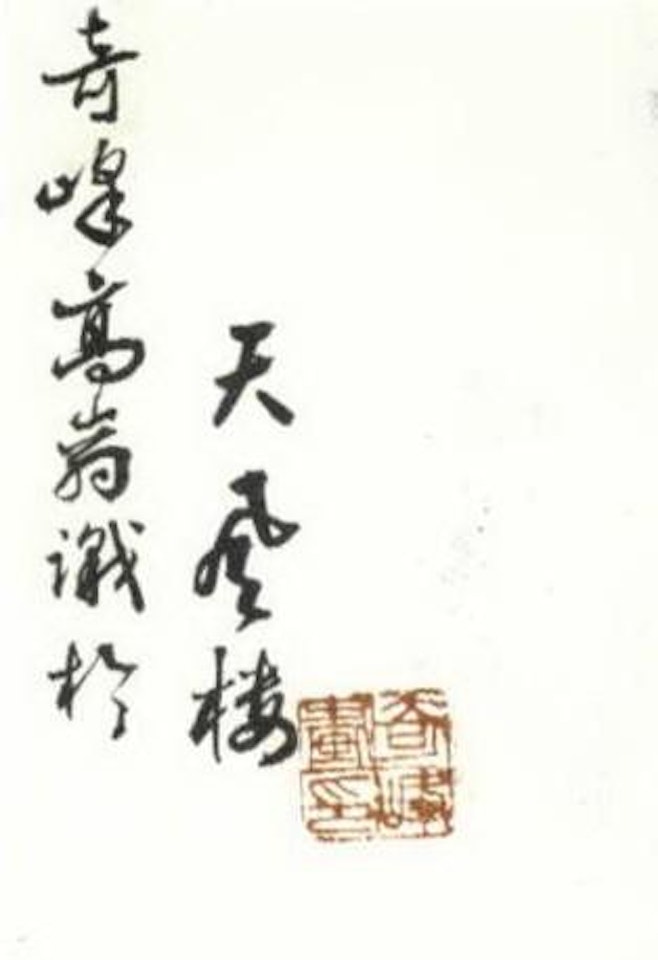 奇峰高嵡識於
天風樓
奇峰
畫印